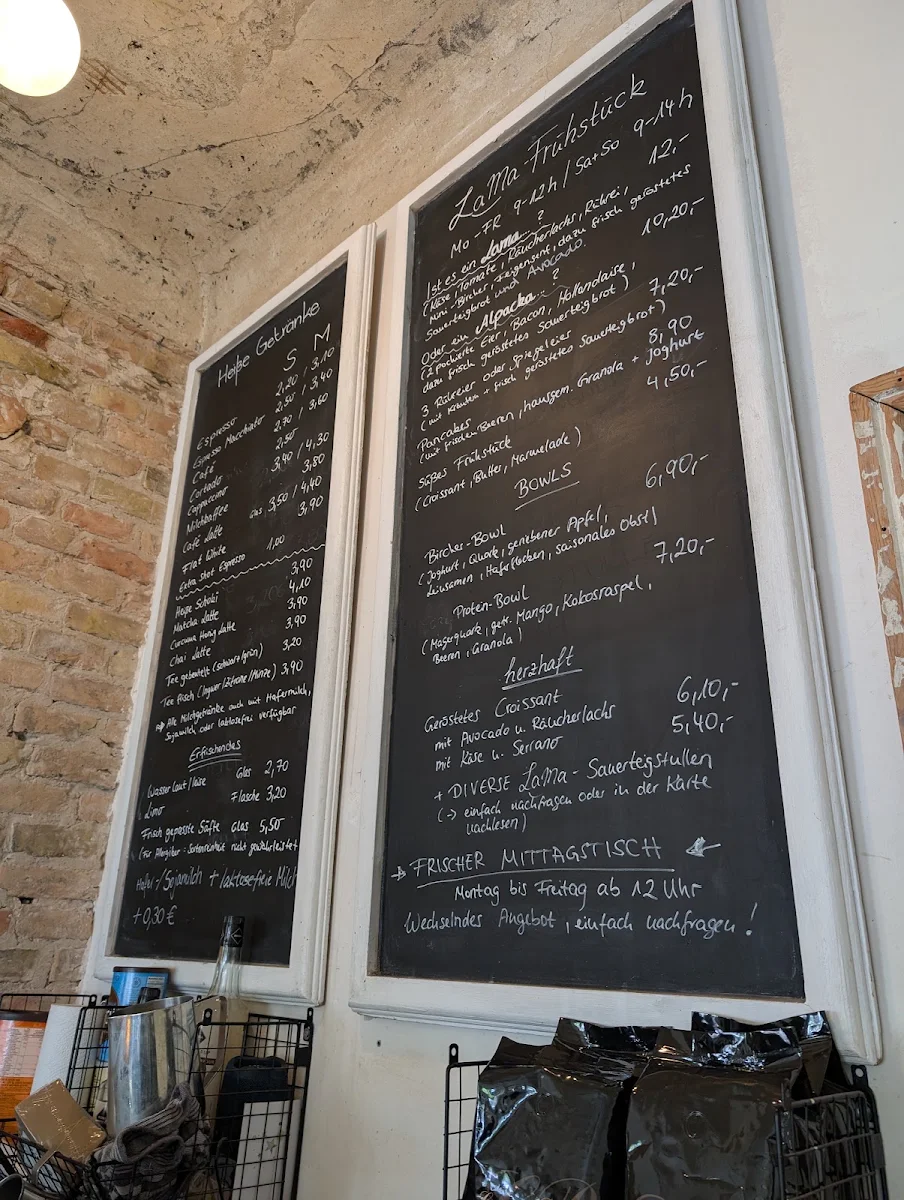 Heiße Getränke
S M
Espresso 2,20 / 3,10
Espresso Macchiato 2,50 / 3,40
Café 2,70 / 3,60
Cortado 2,50
Cappuccino 3,40 / 4,30
Milchkaffee 3,80
Café Latte Gas 3,50 / 4,40
Flat White 3,90
Extra shot Espresso 1,00
Heiße Schoki 3,90
Matcha Latte 4,10
Curcuma Honig Latte 3,90
Chai Latte 3,90
Tee gebeutelt (schwarz/grün) 3,20
Tee frisch (Ingwer/Zitrone/Minze) 3,90
Alle Milchgetränke auch mit Hafermilch,
Sojamilch oder laktosefrei verfügbar
Erfrischendes
Wasser laut/leise Glas 2,70
Limo Flasche 3,20
Frisch gepresste Säfte Glas 5,50
(Für Allergiker: Sortenreinheit nicht gewährleistet
Hafer-/Sojamilch + laktosefreie Milch
+0,30 €
LaMa-Frühstück
Mo-FR 9-12h / Sa+So 9-14h
Ist es ein Lama...? 12,-
(Käse, Tomate, Räucherlachs, Rührei,
Mini-Bircher, Feigensenf, dazu frisch geröstetes
Sauerteigbrot und Avocado.
Oder ein Alpacka...? 10,20,-
(2 pochierte Eier, Bacon, Hollandaise,
dazu frisch geröstetes Sauerteigbrot)
3 Rühreier oder Spiegeleier 7,20,-
(mit Kräutern + frisch geröstetes Sauerteigbrot)
Pancakes 8,90
(mit frischen Beeren, hausgem. Granola + Joghurt
Süßes Frühstück 4,50,-
(Croissant, Butter, Marmelade)
BOWLS
Bircher-Bowl 6,90,-
(Joghurt, Quark, geriebener Apfel,
Leinsamen, Haferflocken, saisonales Obst)
Protein-Bowl 7,20,-
(Magerquark, getr. Mango, Kokosraspel,
Beeren, Granola)
herzhaft
Geröstetes Croissant
mit Avocado u. Räucherlachs 6,10,-
mit Käse u. Serrano 5,40,-
+ DIVERSE LaMa-Sauerteigstullen
(→ einfach nachfragen oder in der Karte
nachlesen)
→ FRISCHER MITTAGSTISCH ←
Montag bis Freitag ab 12 Uhr
Wechselndes Angebot, einfach nachfragen!